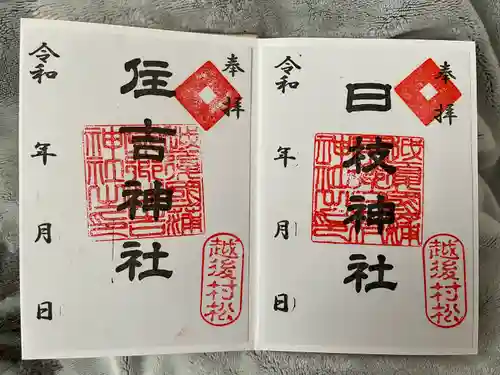 奉拝
日枝神社
越後村松
令和 年 月 日
奉拝
住吉神社
越後村松
令和 年 月 日